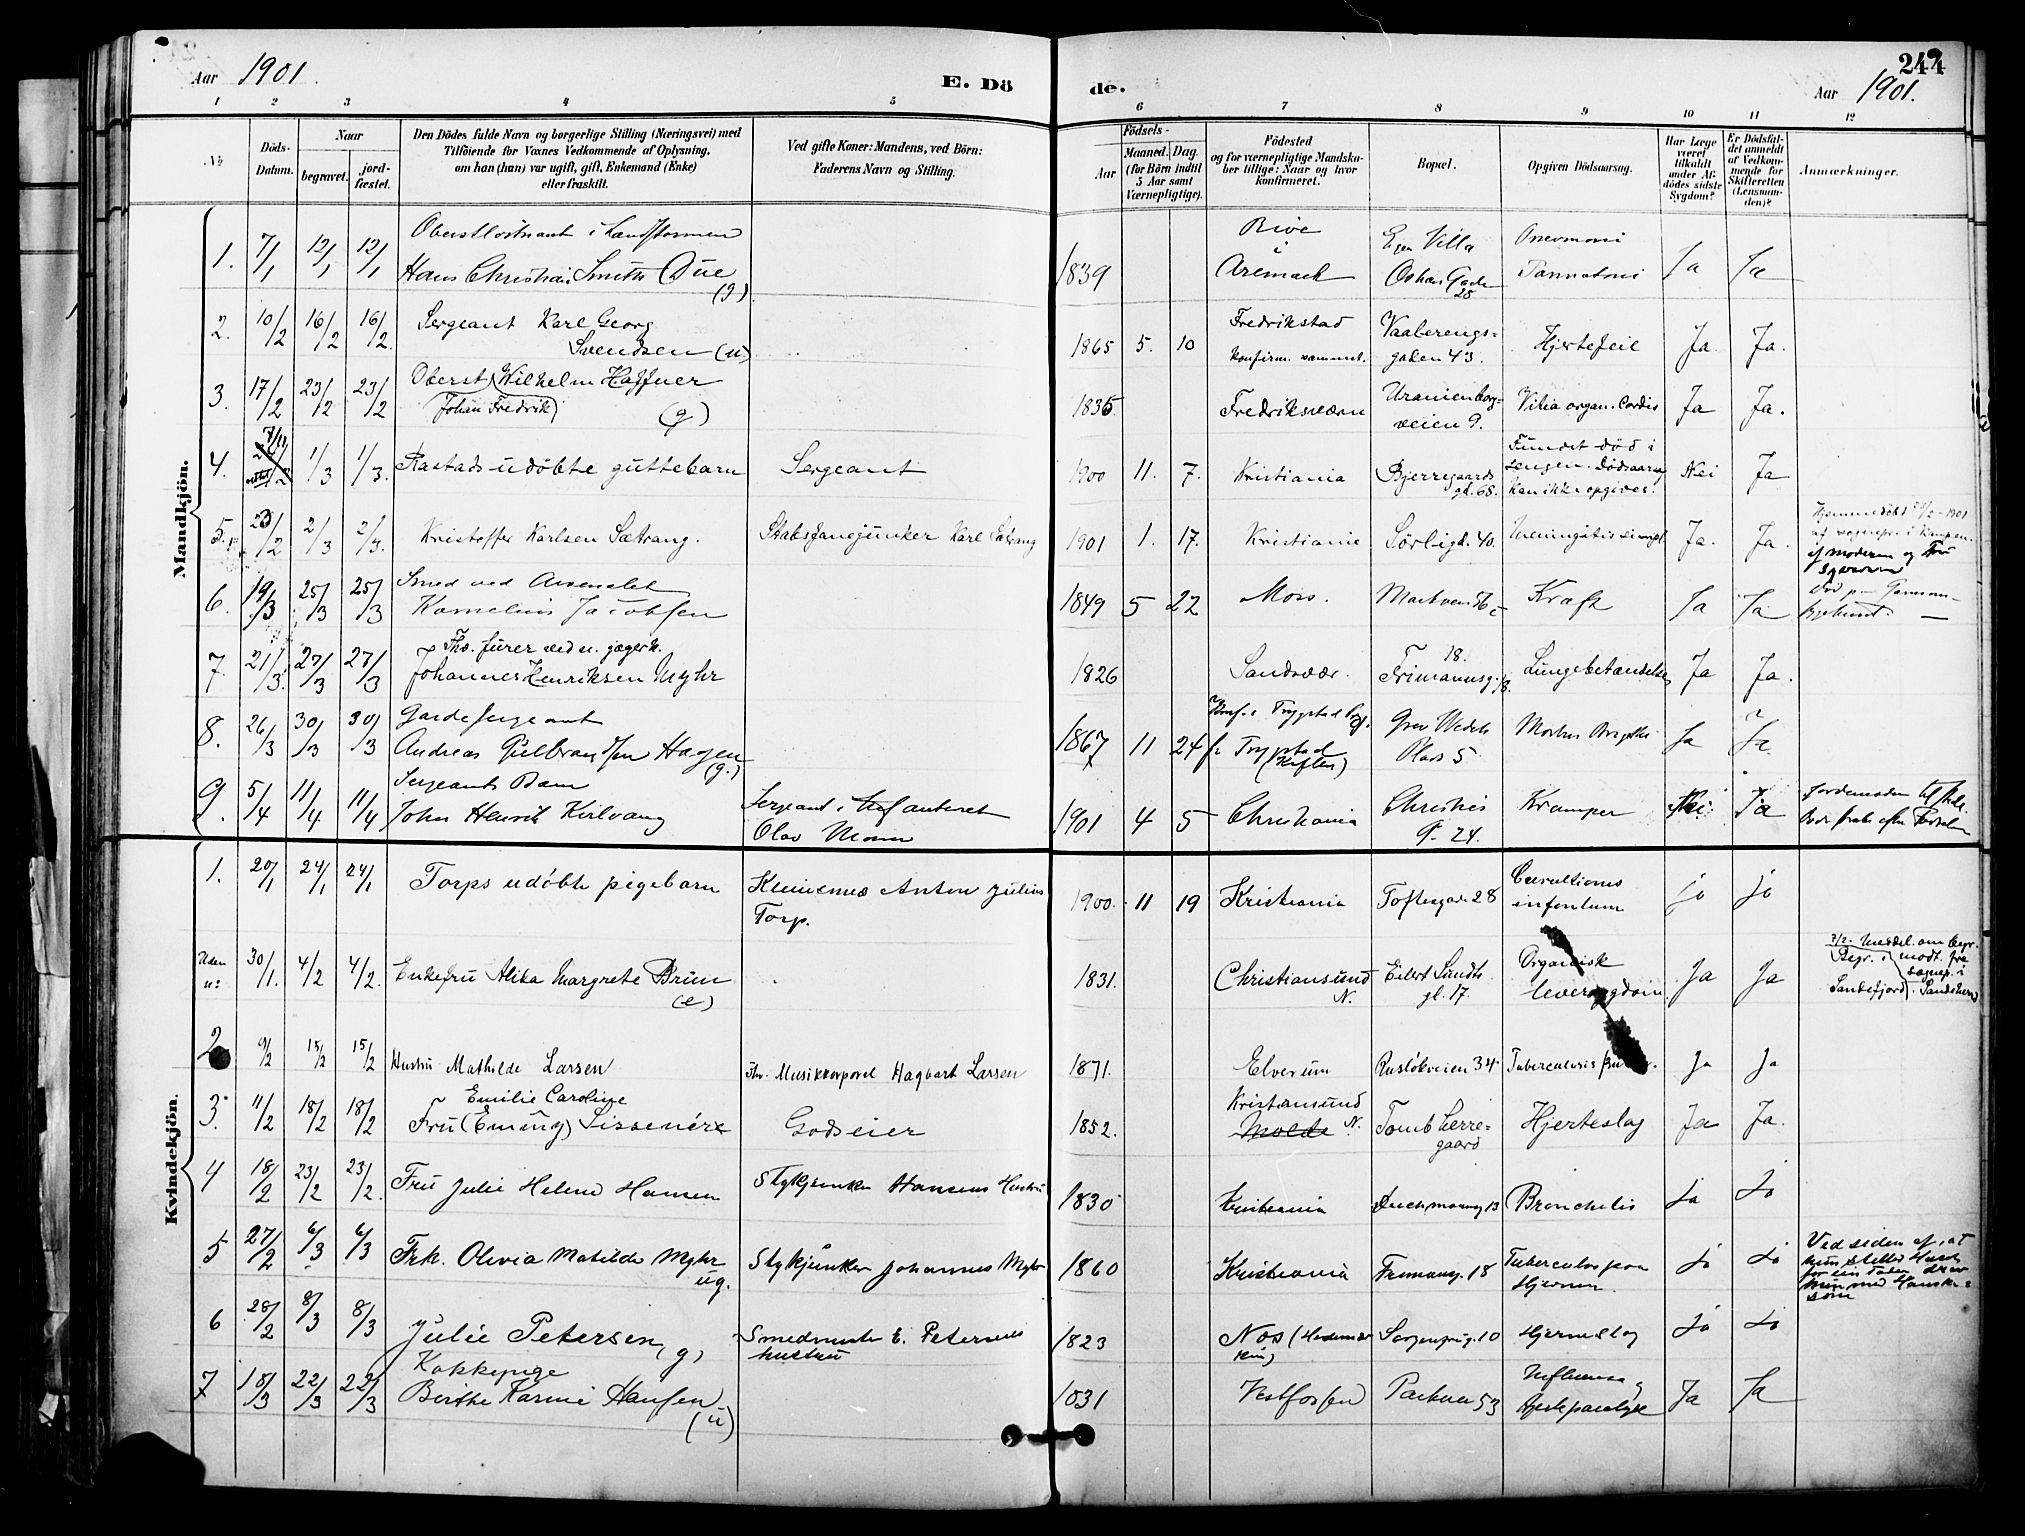 Aar 1901.
E. Dö
de.
244
Aar 1901.
1 2 3 4 5 6 7 8 9 10 11 12
No
Döds-
Datum.
Naar
begravet.
jord-
fæstet.
Den Dödes fulde Navn og borgerlige Stilling (Næringsvei) med
Tilföiende for Voxnes Vedkommende af Oplysning,
om han (hun) var ugift, gift, Enkemand (Enke)
eller fraskilt.
Ved gifte Koner: Mandens, ved Börn:
Faderens Navn og Stilling.
Födsels-
Aar
Maaned. Dag.
(for Börn indtil
5 Aar samt
Værnepligtige).
Födested
og for værnepligtige Mandska-
ber tillige: Naar og hvor
konfirmeret.
Bopæl.
Opgiven Dödsaarsag.
Har Læge
været
tilkaldt
under Af-
dödes sidste
Sygdom?
Er Dödsfal-
det anmeldt
af Vedkom-
mende for
Skifteretten
(Lensman-
den)?
Anmærkninger.
Mandkjön.
1. 7/1 12/1 12/1 Oberstløitnant i Landstormen
Hans Christian Smith Due (g) 1839 i Aremark Egen Villa Oskars Gade 25 Ja Ja
2. 10/2 16/2 16/2 Sergeant Karl Georg
Svendsen (u.) 1865 5. 10 Fredrikstad konfirm. sammest. Vaalerengs-
gaden 43. Hjertefeil Ja. Ja.
3. 17/2 23/2 23/2 Oberst Wilhelm Haffner
(Johan Fredrik) (g) 1835 Fredriksværn Uranienborg-
veien 9. Vitia organ. Cordis Ja Ja.
4. 1/3 1/3. Rastads udöbte guttebarn Sergeant 1900 11. 7. Kristiania Bjerregaards
gd. 68. Fundet död i
sengen. Dödsaarsag
kan ikke opgives. Nei Ja
5. 23/2 2/3 2/3. Kristoffer Karlsen Sætrang. Stabsfanejunker Karl Sætrang 1901 1. 17. Kristiania Sörligd. 40. Meningitis simpl. Ja. Ja.
Hjemmedöbt
af moderen og Fru
6. 19/3 25/3 25/3 Smed ved Arsenalet
Kornelius Jacobsen 1849 5 22 Moss. Kræft Ja Ja
7. 21/3. 27/3 27/3 Johannes Henriksen Myhr 1826 Sandsvær. 18. Frimannsg. 18. Lungebetændelse Ja Ja.
8. 26/3 30/3 30/3 Gardesergeant
Andreas Gulbrandsen Hagen (g.) 1867 11 24 Trygstad Grev Wedels
Plads 5 Morbus Brightii Ja Ja
9. 5/4 11/4 11/4 Sergeants Barn
John Henrik Kirkvang Sergeant i Infanteriet
Olav Moan 1901 4 5 Christiania Christies
G. 24. Kramper Nei Ja
Jordemoder tilstede.
Kvindekjön.
1. 20/1 24/1 24/1 Torps udöbte pigebarn Anton Julius
Torp. 1900. 11 19 Kristiania Toftesgade 28 Convultiones
infantum ja ja
Uden
no 30/1. 4/2 4/2. Enkefru Alika Margrete Brun
(e) 1831. Christiansund
N. Eilert Sundts
gt. 17. Organisk
leversygdom. Ja Ja
2/2. Meddel. om begr.
Begr. i modt. fra
sognep. i
Sandefjord. Sandeherred
2 9/2 15/2 15/2 Hustru Mathilde Larsen Fhv. Musikkorporal Hagbart Larsen 1871. Elverum Ruslökveien 34 Tuberculosis Ja Ja
3. 11/2 18/2 18/2 Emilie Caroline
Fru (Emmy) Sissenèr Godseier 1852. Kristiansund
Molde N. Tomb Herre-
gaard Hjerteslag Ja Ja.
4 18/2 23/2 23/2. Fru Julie Helene Hansen Stykjunker Hansens Hustru 1830 Kristiania Deichmansg 13 Bronchitis ja ja
5 27/2 6/3 6/3 Frk. Olivia Matilde Myhr
ug. Stykjunker Johannes Myhr 1860 Kristiania Frimansg. 18 Tuberculos paa
Hjernen. ja ja
Ved siden af, at
hun stelte Huset
for sin Fader drev
hun med Hanske-
söm
6 28/2 8/3 8/3 Julie Petersen, (g) Smedmester E. Petersens
hustru 1823 Nes (Hedemar
ken) Sorgenfrig. 10 Hjerneslag ja ja
7 18/3 22/3 22/3 Kokkepige
Berthe Karine Hansen
(u) 1831 Vestfossen Parkvei 53 Influensa og
Hjerteparalyse Ja Ja